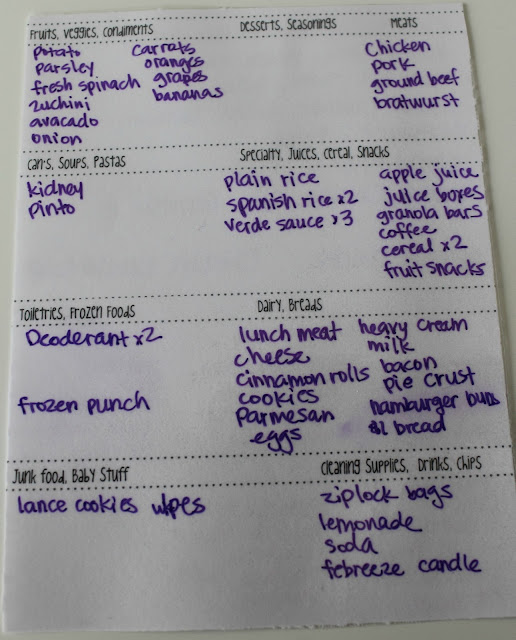 Fruits, Veggies, Condiments
Potato
parsley
fresh spinach
zuchini
avacado
onion
Carrats
oranges
grapes
bananas
Desserts, Seasonings
Meats
Chicken
pork
ground beef
bratwurst
Can's, Soups, Pastas
kidney
pinto
Specialty, Juices, Cereal, Snacks
plain rice
spanish rice x2
verde sauce x3
apple juice
juice boxes
granola bars
coffee
cereal x2
fruit snacks
Toiletries, Frozen Foods
Deoderant x2
frozen punch
Dairy, Breads
lunch meat
cheese
cinnamon rolls
cookies
Parmesan
eggs
heavy cream
milk
bacon
pie crust
hamburger buns
bread
Junk food, Baby Stuff
lance cookies wipes
Cleaning Supplies, Drinks, Chips
ziplock bags
lemonade
soda
febreeze candle